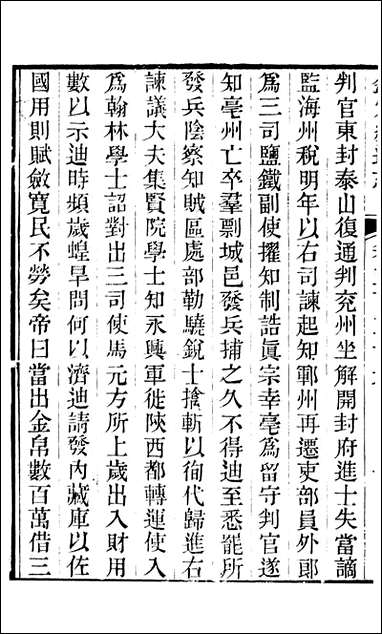 判官東封泰山復通判兖州坐解開封府進士失當謫
監海州稅明年以右司諫起知鄆州再遷吏部員外郎
爲三司鹽鐵副使擢知制誥眞宗幸亳爲留守判官遂
知亳州亡卒羣剽城邑發兵捕之久不得迪至悉罷所
發兵陰察知賊區處部勒驍銳士擒斬以徇代歸進右
諫議大夫集賢院學士知永興軍徙陝西都轉運使入
爲翰林學士詔對出三司使馬元方所上歲出入財用
數以示迪時頻歲蝗旱問何以濟迪請發內藏庫以佐
國用則賦斂寬民不勞矣帝曰當出金帛數百萬借三